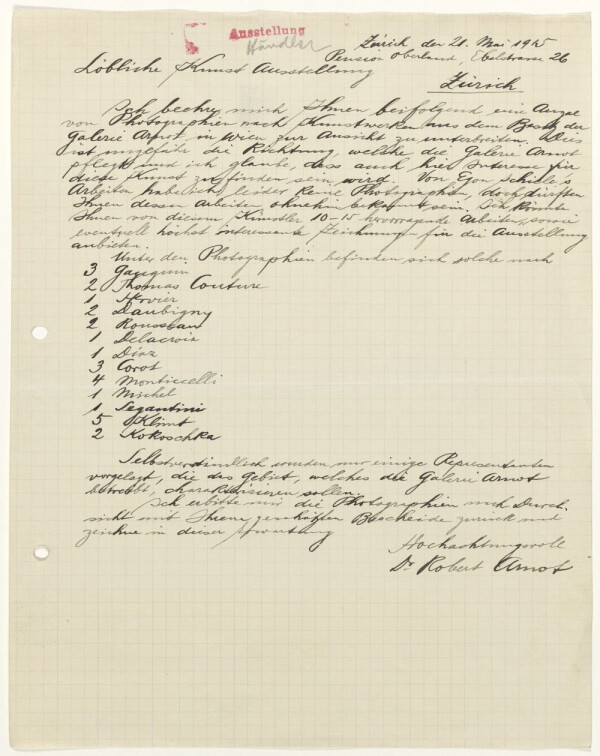 Ausstellung
Händler
Zürich den 21. Mai 1915
Pension Oberland, Ebelstrasse 26
Löbliche Kunst Ausstellung
Zürich
Ich beehre mich Ihnen beifolgend eine Anzae
von Photographien nach Kunstwerken aus dem Besitz der
Galerie Arnot, in Wien zur Ansicht zu unterbreiten. Dies
ist ungefähr die Richtung, welche die Galerie Arnot
pflegt und ich glaube, dass auch hier Interesse für
diese Kunst zu finden sein wird. Von Egon Schiele's
Arbeiten habe ich leider keine Photographn, doch dürften
Ihnen dessen Arbeiten ohnehin bekannt sein. Ich könnte
Ihnen von diesem Künstler 10-15 hervorragende Arbeiten, sowie
eventuell höchst interessante Zeichnungen für die Ausstellung
anbieten.
Unter den Photographien befinden sich solche nach
3 Gauguin
2 Thomas Couture
1 Hervier
2 Daubigny
2 Rousseau
1 Delacroix
1 Diaz
3 Corot
4 Monticcelli
1 Michel
1 Segantini
5 Klimt
2 Kokoschka
Selbstverständlich wurden nur einige Representanten
vorgelegt, die das Gebiet, welches die Galerie Arnot
betreibt, charakterisieren sollen.
Ich erbitte mir die Photographien nach Durch-
sicht mit Ihrem geschätzten Bescheide zurück und
zeichne in dieser Erwartung
Hochachtungsvoll
Dr Robert Arnot